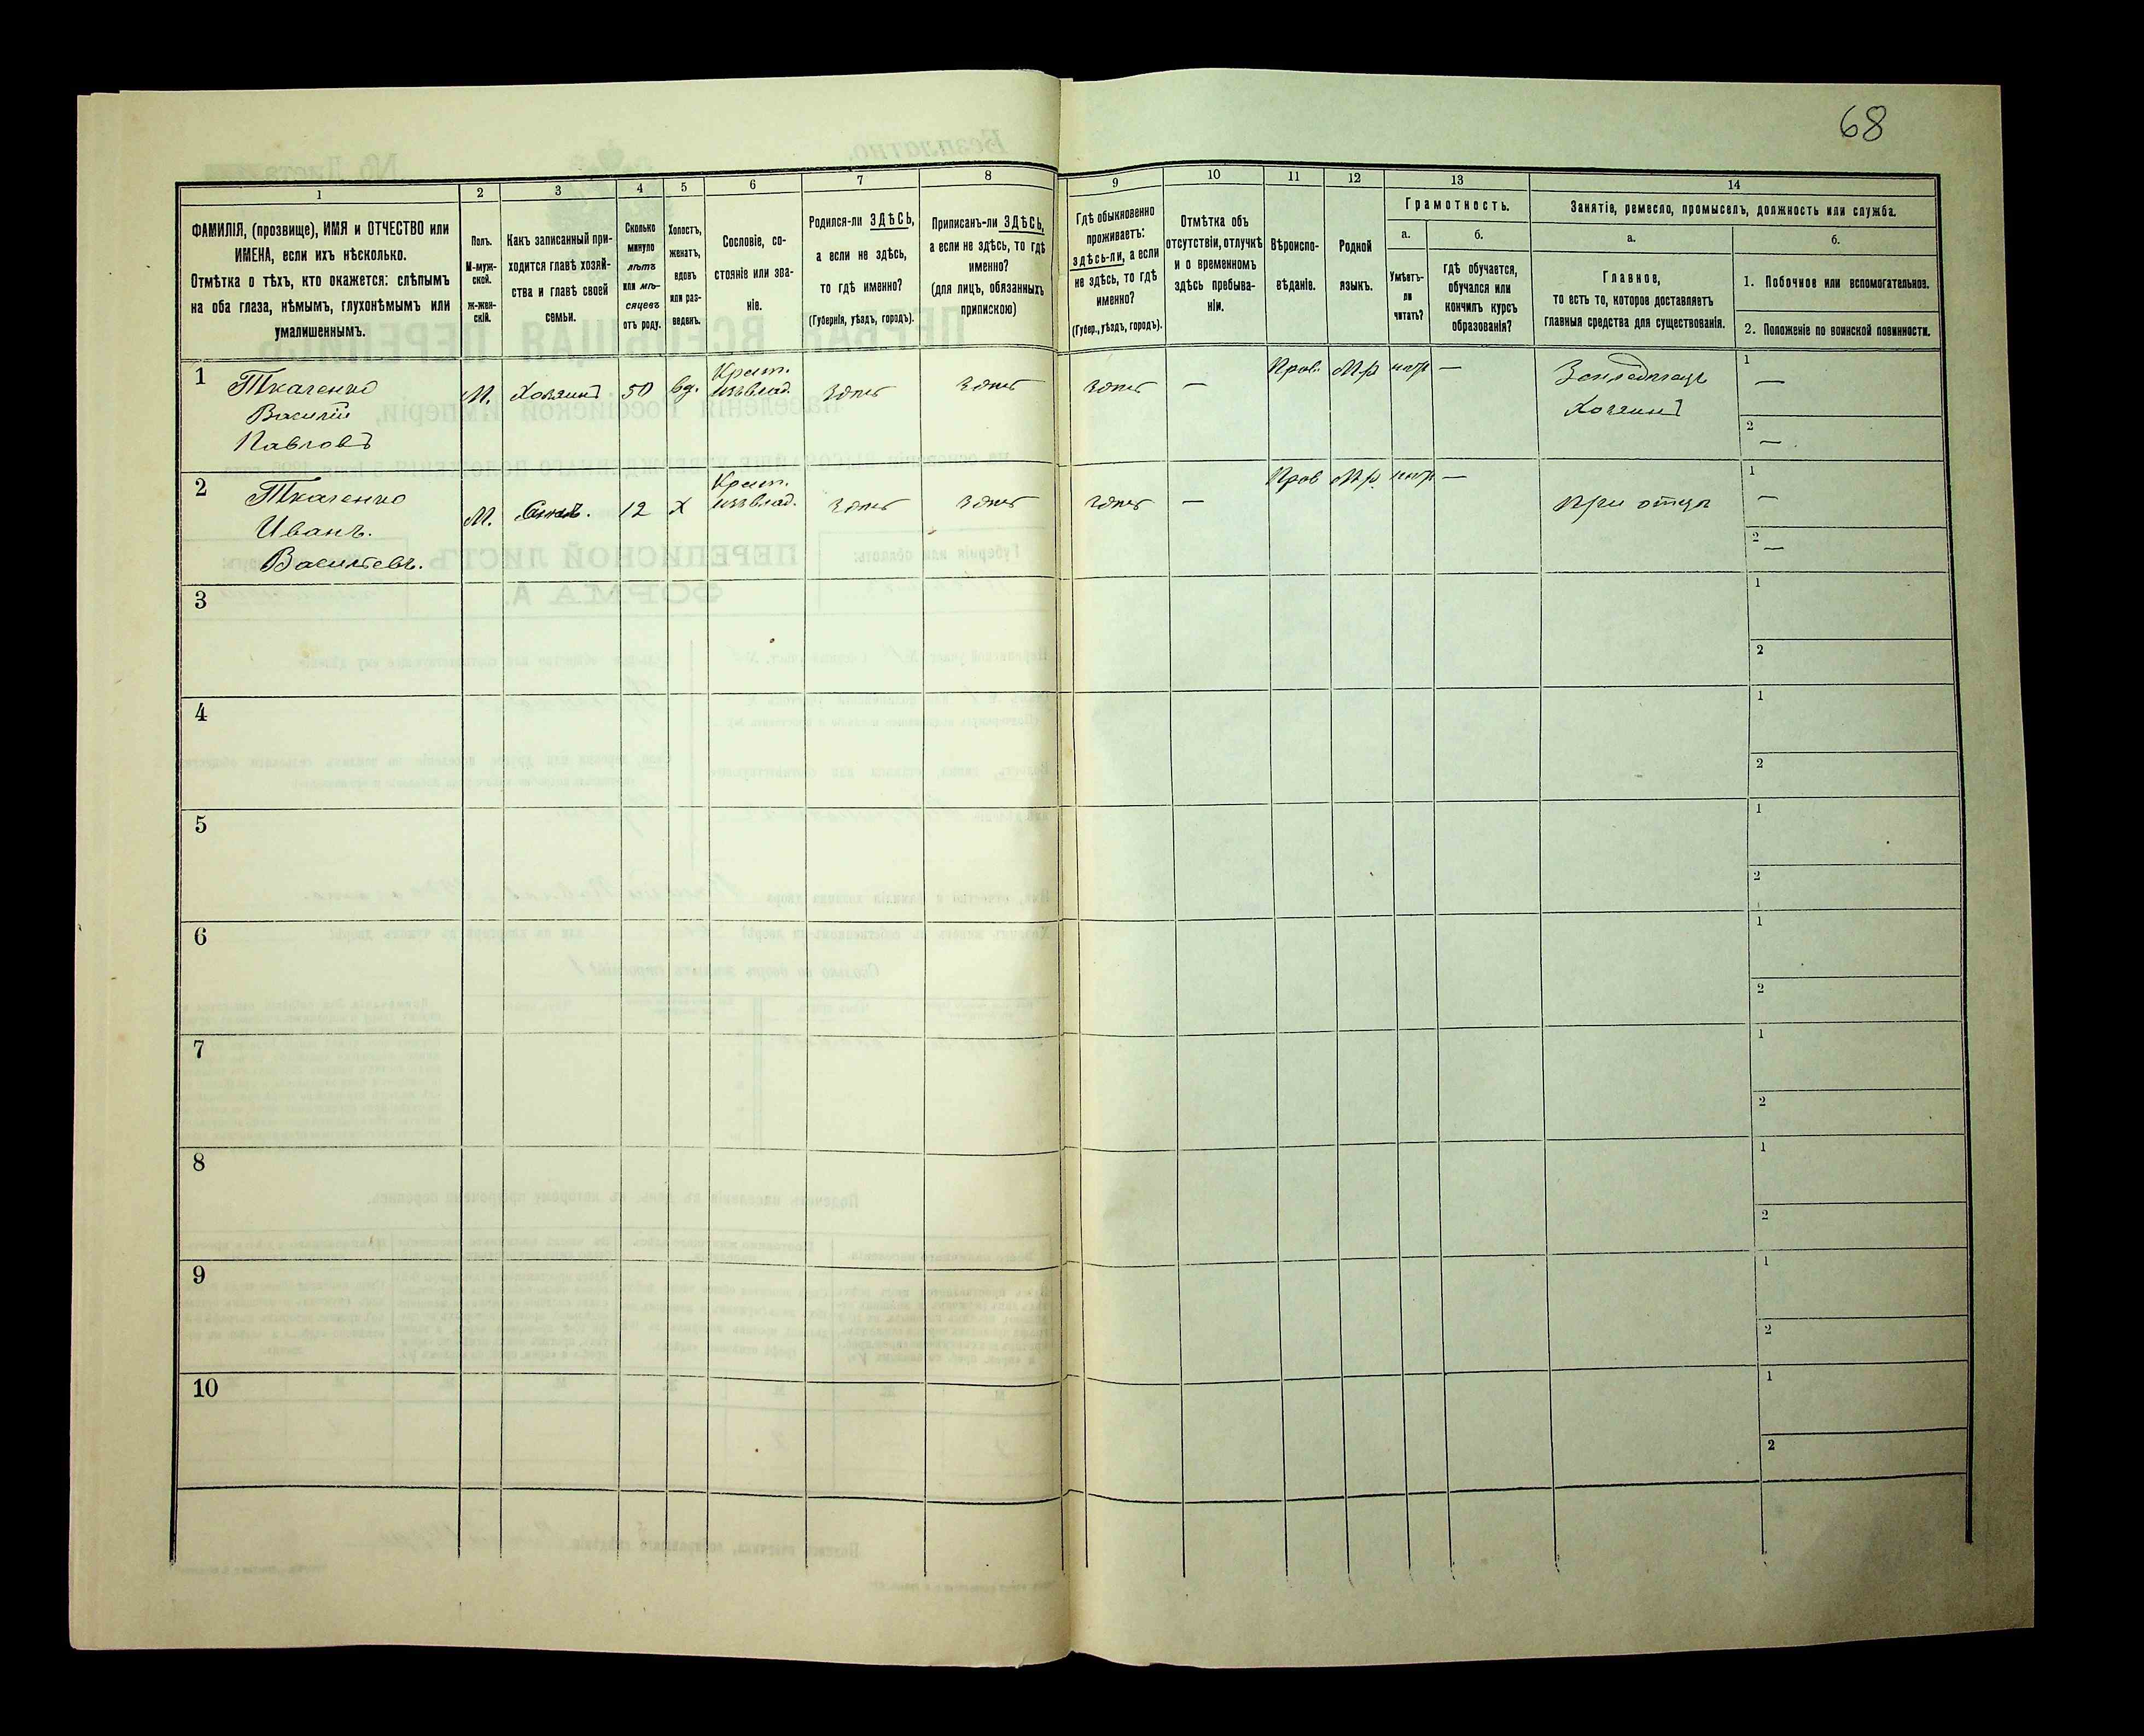 68
1
2
3
4
5
6
7
8
9
10
11
12
13
14
ФАМИЛІЯ, (прозвище), ИМЯ и ОТЧЕСТВО или
ИМЕНА, если ихъ нѣсколько.
Отмѣтка о тѣхъ, кто окажется: слѣпымъ
на оба глаза, нѣмымъ, глухонѣмымъ или
умалишеннымъ.
Полъ.
М-муж-
ской.
ж-жен-
скій.
Какъ записанный при-
ходится главѣ хозяй-
ства и главѣ своей
семьи.
Сколько
минуло
лѣтъ
или мѣ-
сяцевъ
отъ роду.
Холостъ,
женатъ,
вдовъ
или раз-
веденъ.
Сословіе, со-
стояніе или зва-
ніе.
Родился-ли ЗДѢСЬ,
а если не здѣсь,
то гдѣ именно?
(Губернія, уѣздъ, городъ).
Приписанъ-ли ЗДѢСЬ,
а если не здѣсь, то гдѣ
именно?
(для лицъ, обязанныхъ
припискою)
Гдѣ обыкновенно
проживаетъ:
здѣсь-ли, а если
не здѣсь, то гдѣ
именно?
(Губер., уѣздъ, городъ).
Отмѣтка объ
отсутствіи, отлучкѣ
и о временномъ
здѣсь пребыва-
ніи.
Вѣроиспо-
вѣданіе.
Родной
языкъ.
Грамотность.
а.
Умѣетъ-
ли
читать?
б.
гдѣ обучается,
обучался или
кончилъ курсъ
образованія?
Занятіе, ремесло, промыселъ, должность или служба.
а.
Главное,
то есть то, которое доставляетъ
главныя средства для существованія.
б.
1. Побочное или вспомогательное.
2. Положеніе по воинской повинности.
1
Ткаченко
Василій
Павловъ
М. Хозяинъ 50 вд.
Крест.
изъ влад.
здѣсь здѣсь здѣсь — Прав. М.р нѣтъ —
Земледѣлецъ
Хозяинъ
1 —
2 —
2
Ткаченко
Иванъ.
Васильевъ.
М. Сынъ. 12 х
Крест.
изъ влад.
здѣсь здѣсь здѣсь — Прав М.р. нѣтъ —
При отцѣ
1 —
2 —
3
1
2
4
1
2
5
1
2
6
1
2
7
1
2
8
1
2
9
1
2
10
1
2